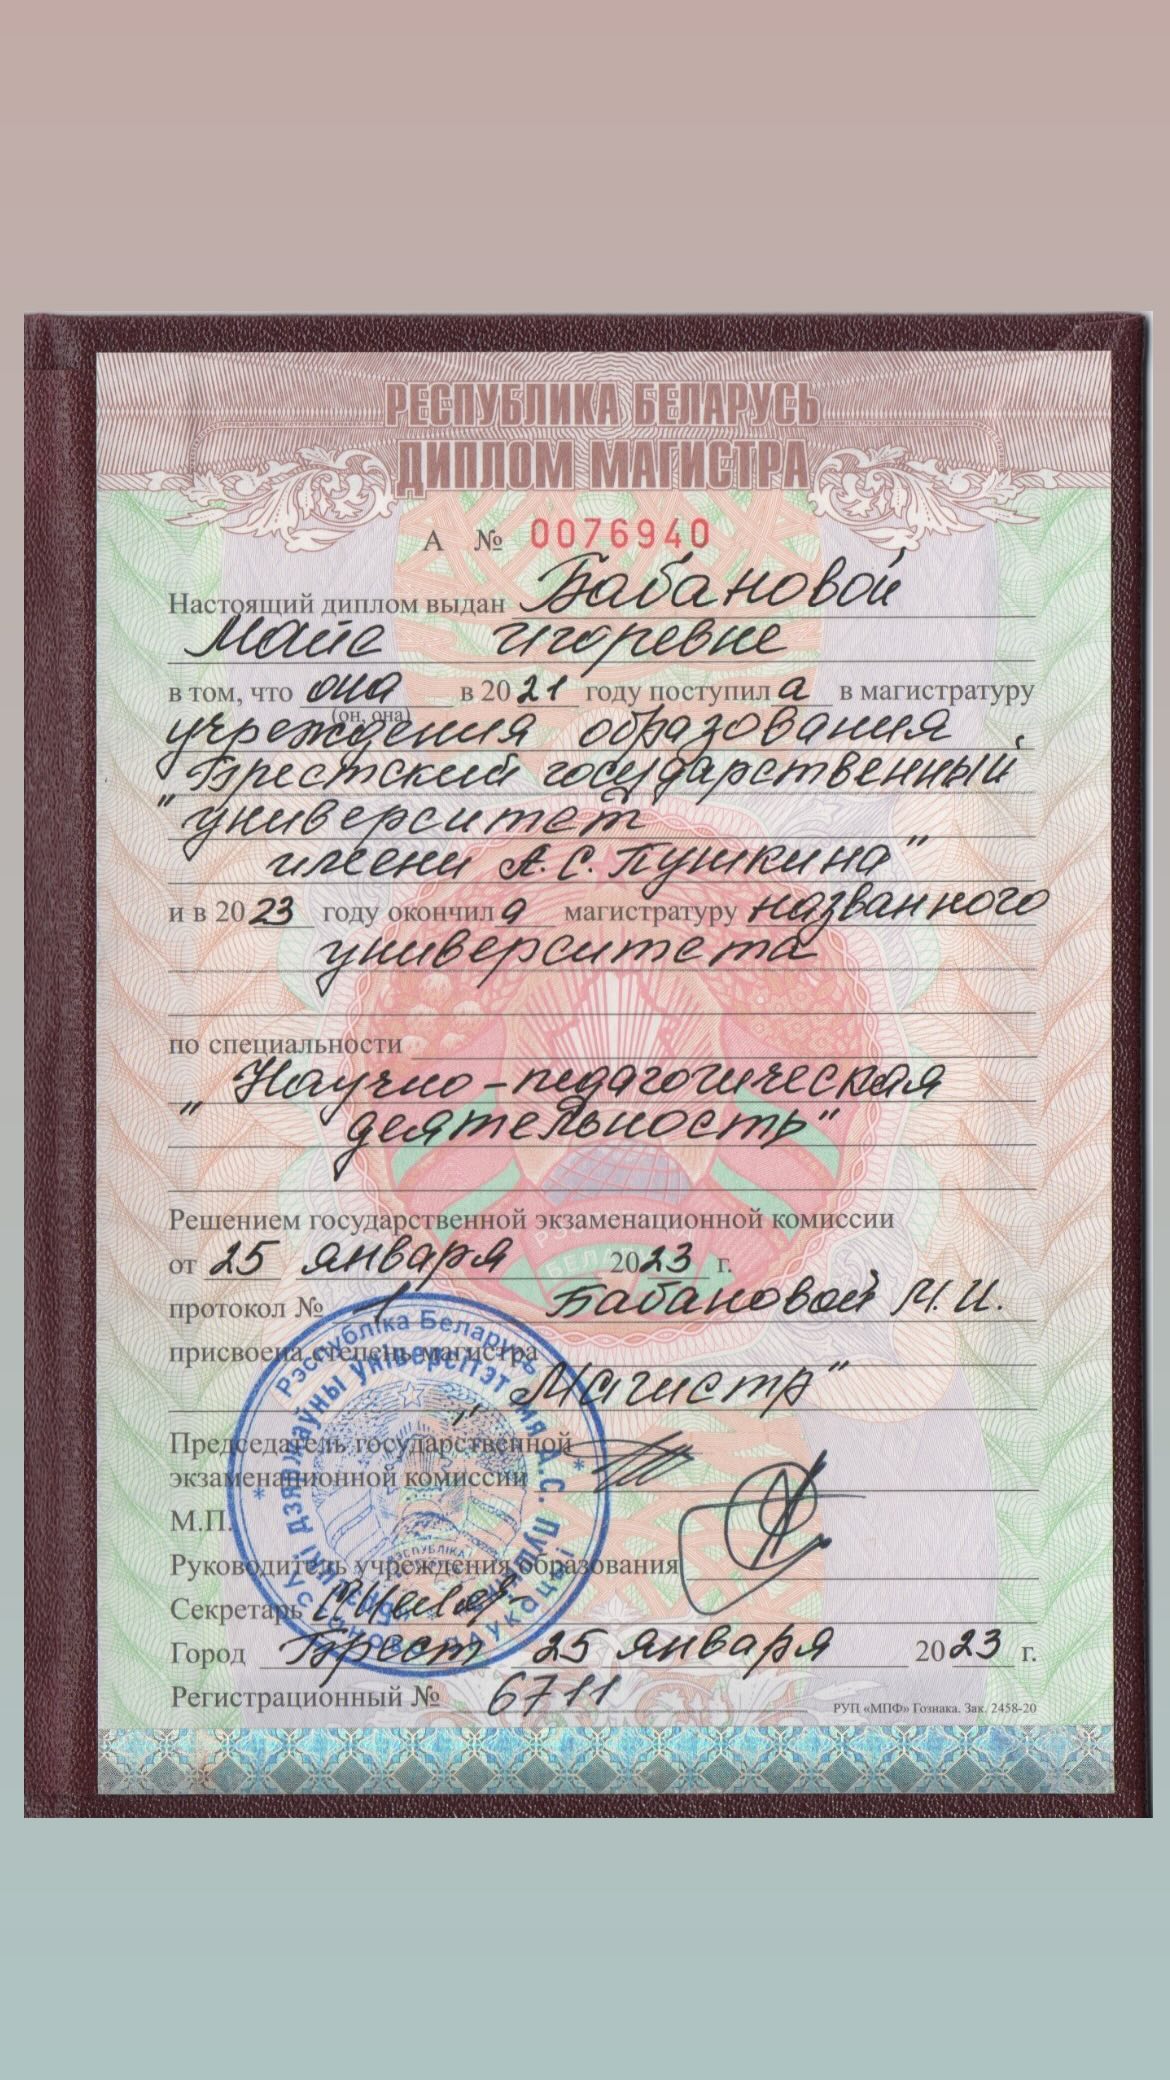 РЕСПУБЛИКА БЕЛАРУСЬ
ДИПЛОМ МАГИСТРА
А № 0076940
Настоящий диплом выдан Бабановой
Майе Игоревне
в том, что она в 2021 году поступила в магистратуру
(он, она)
учреждения образования
"Брестский государственный
университет
имени А.С. Пушкина"
и в 2023 году окончила магистратуру названного
университета
по специальности
"Научно-педагогическая
деятельность"
Решением государственной экзаменационной комиссии
от 25 января 2023 г.
протокол № 1 Бабановой М.И.
присвоена степень магистра
"Магистр"
Председатель государственной
экзаменационной комиссии
М.П.
Руководитель учреждения образования
Секретарь
Город Брест 25 января 2023 г.
Регистрационный № 6711
РУП «МПФ» Гознака. Зак. 2458-20
Рэспубліка Беларусь
дзяржаўны ўніверсітэт імя А.С. Пушкіна